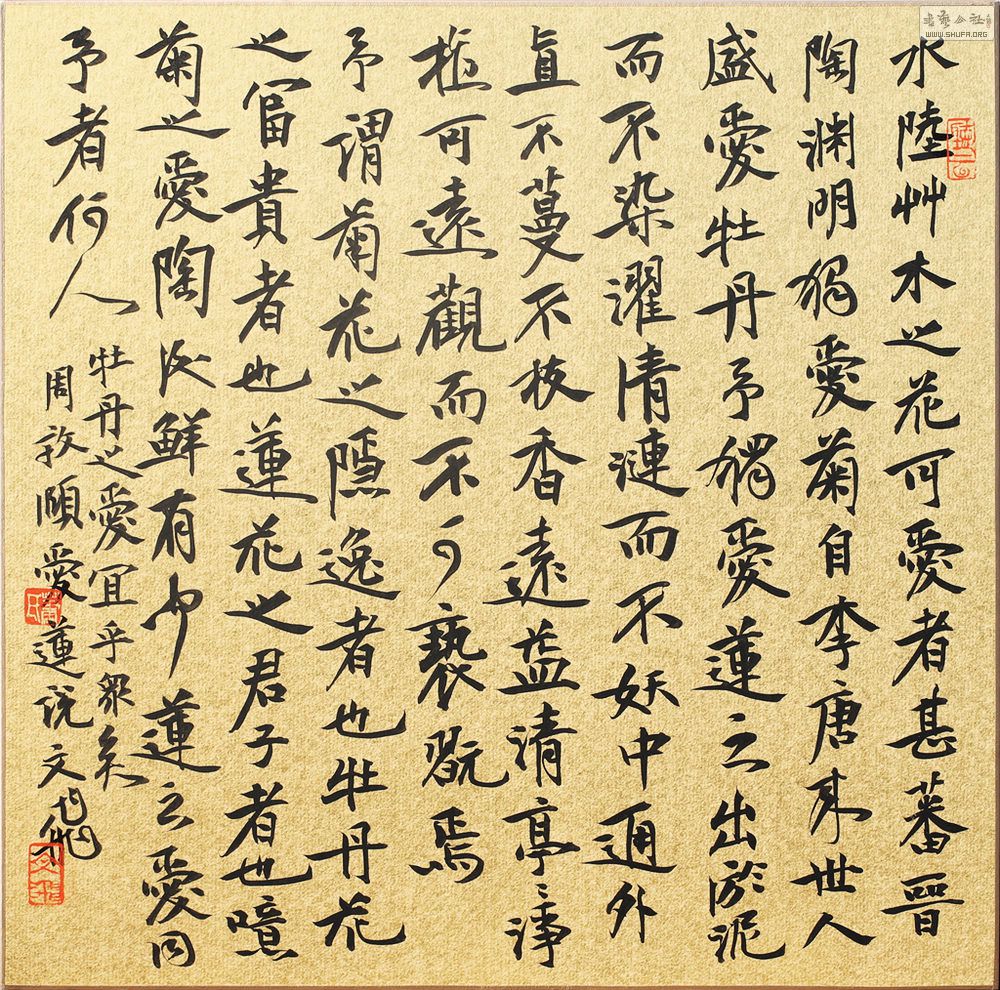 水陸艸木之花可愛者甚蕃晉
陶渊明獨愛菊自李唐来世人
盛愛牡丹予獨愛蓮之出於泥
而不染濯清漣而不妖中通外
直不蔓不枝香遠益清亭〻淨
植可遠觀而不可褻翫焉
予謂菊花之隱逸者也牡丹花
之富貴者也蓮花之君子者也噫
菊之愛陶後鮮有聞蓮之愛同
予者何人
牡丹之愛宜乎衆矣
周敦頤愛蓮説文
書藝公社
WWW.SHUFA.ORG